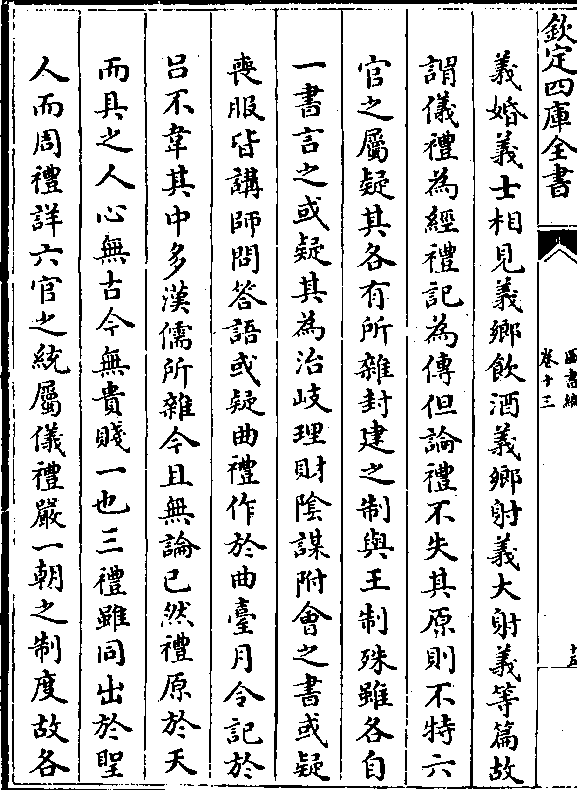 欽定四庫全書
圖書編
卷十三
義婚義士相見義鄉飲酒義鄉射義大射義等篇故
謂儀禮為經禮記為傳但論禮不失其原則不特六
官之屬疑其各有所雜封建之制與王制殊雖各自
一書言之或疑其為治岐理財陰謀附會之書或疑
喪服皆講師問答語或疑曲禮作於曲臺月令記於
呂不韋其中多漢儒所雜今且無論已然禮原於天
而具之人心無古今無貴賤一也三禮雖同出於聖
人而周禮詳六官之統屬儀禮嚴一朝之制度故各